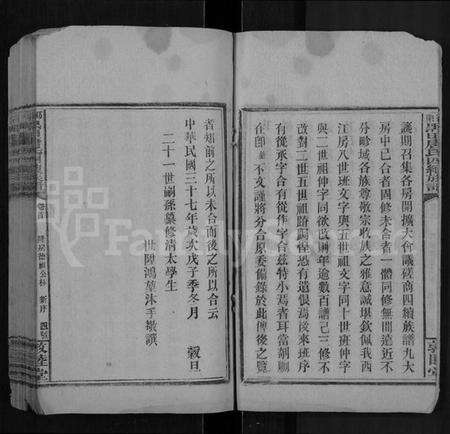 議期召集各房開擴大會議磋商四續族譜九大
房中已合者固修未合者一體同修無間遠近不
分畛域各族尊敬宗收族之雅意誠堪欽佩我西
江房八世班文字與五世祖文字同十世班仲字
與二世祖仲字同欲改則年逾數百譜已三修不
改對二世五世祖諱詞有遺恨恐後來班序
有從承字合有從作字合茲特小焉者耳當剞劂
在即 不文謹將分合原委備錄於此俾後之覽
者知前之所以未合而後之所以合云
中華民國三十七年歲次戊子季冬月 穀旦
二十一世嗣孫纂修清太學生
世陞鴻 沐手敬譔
卷首
新序
FamilySearch